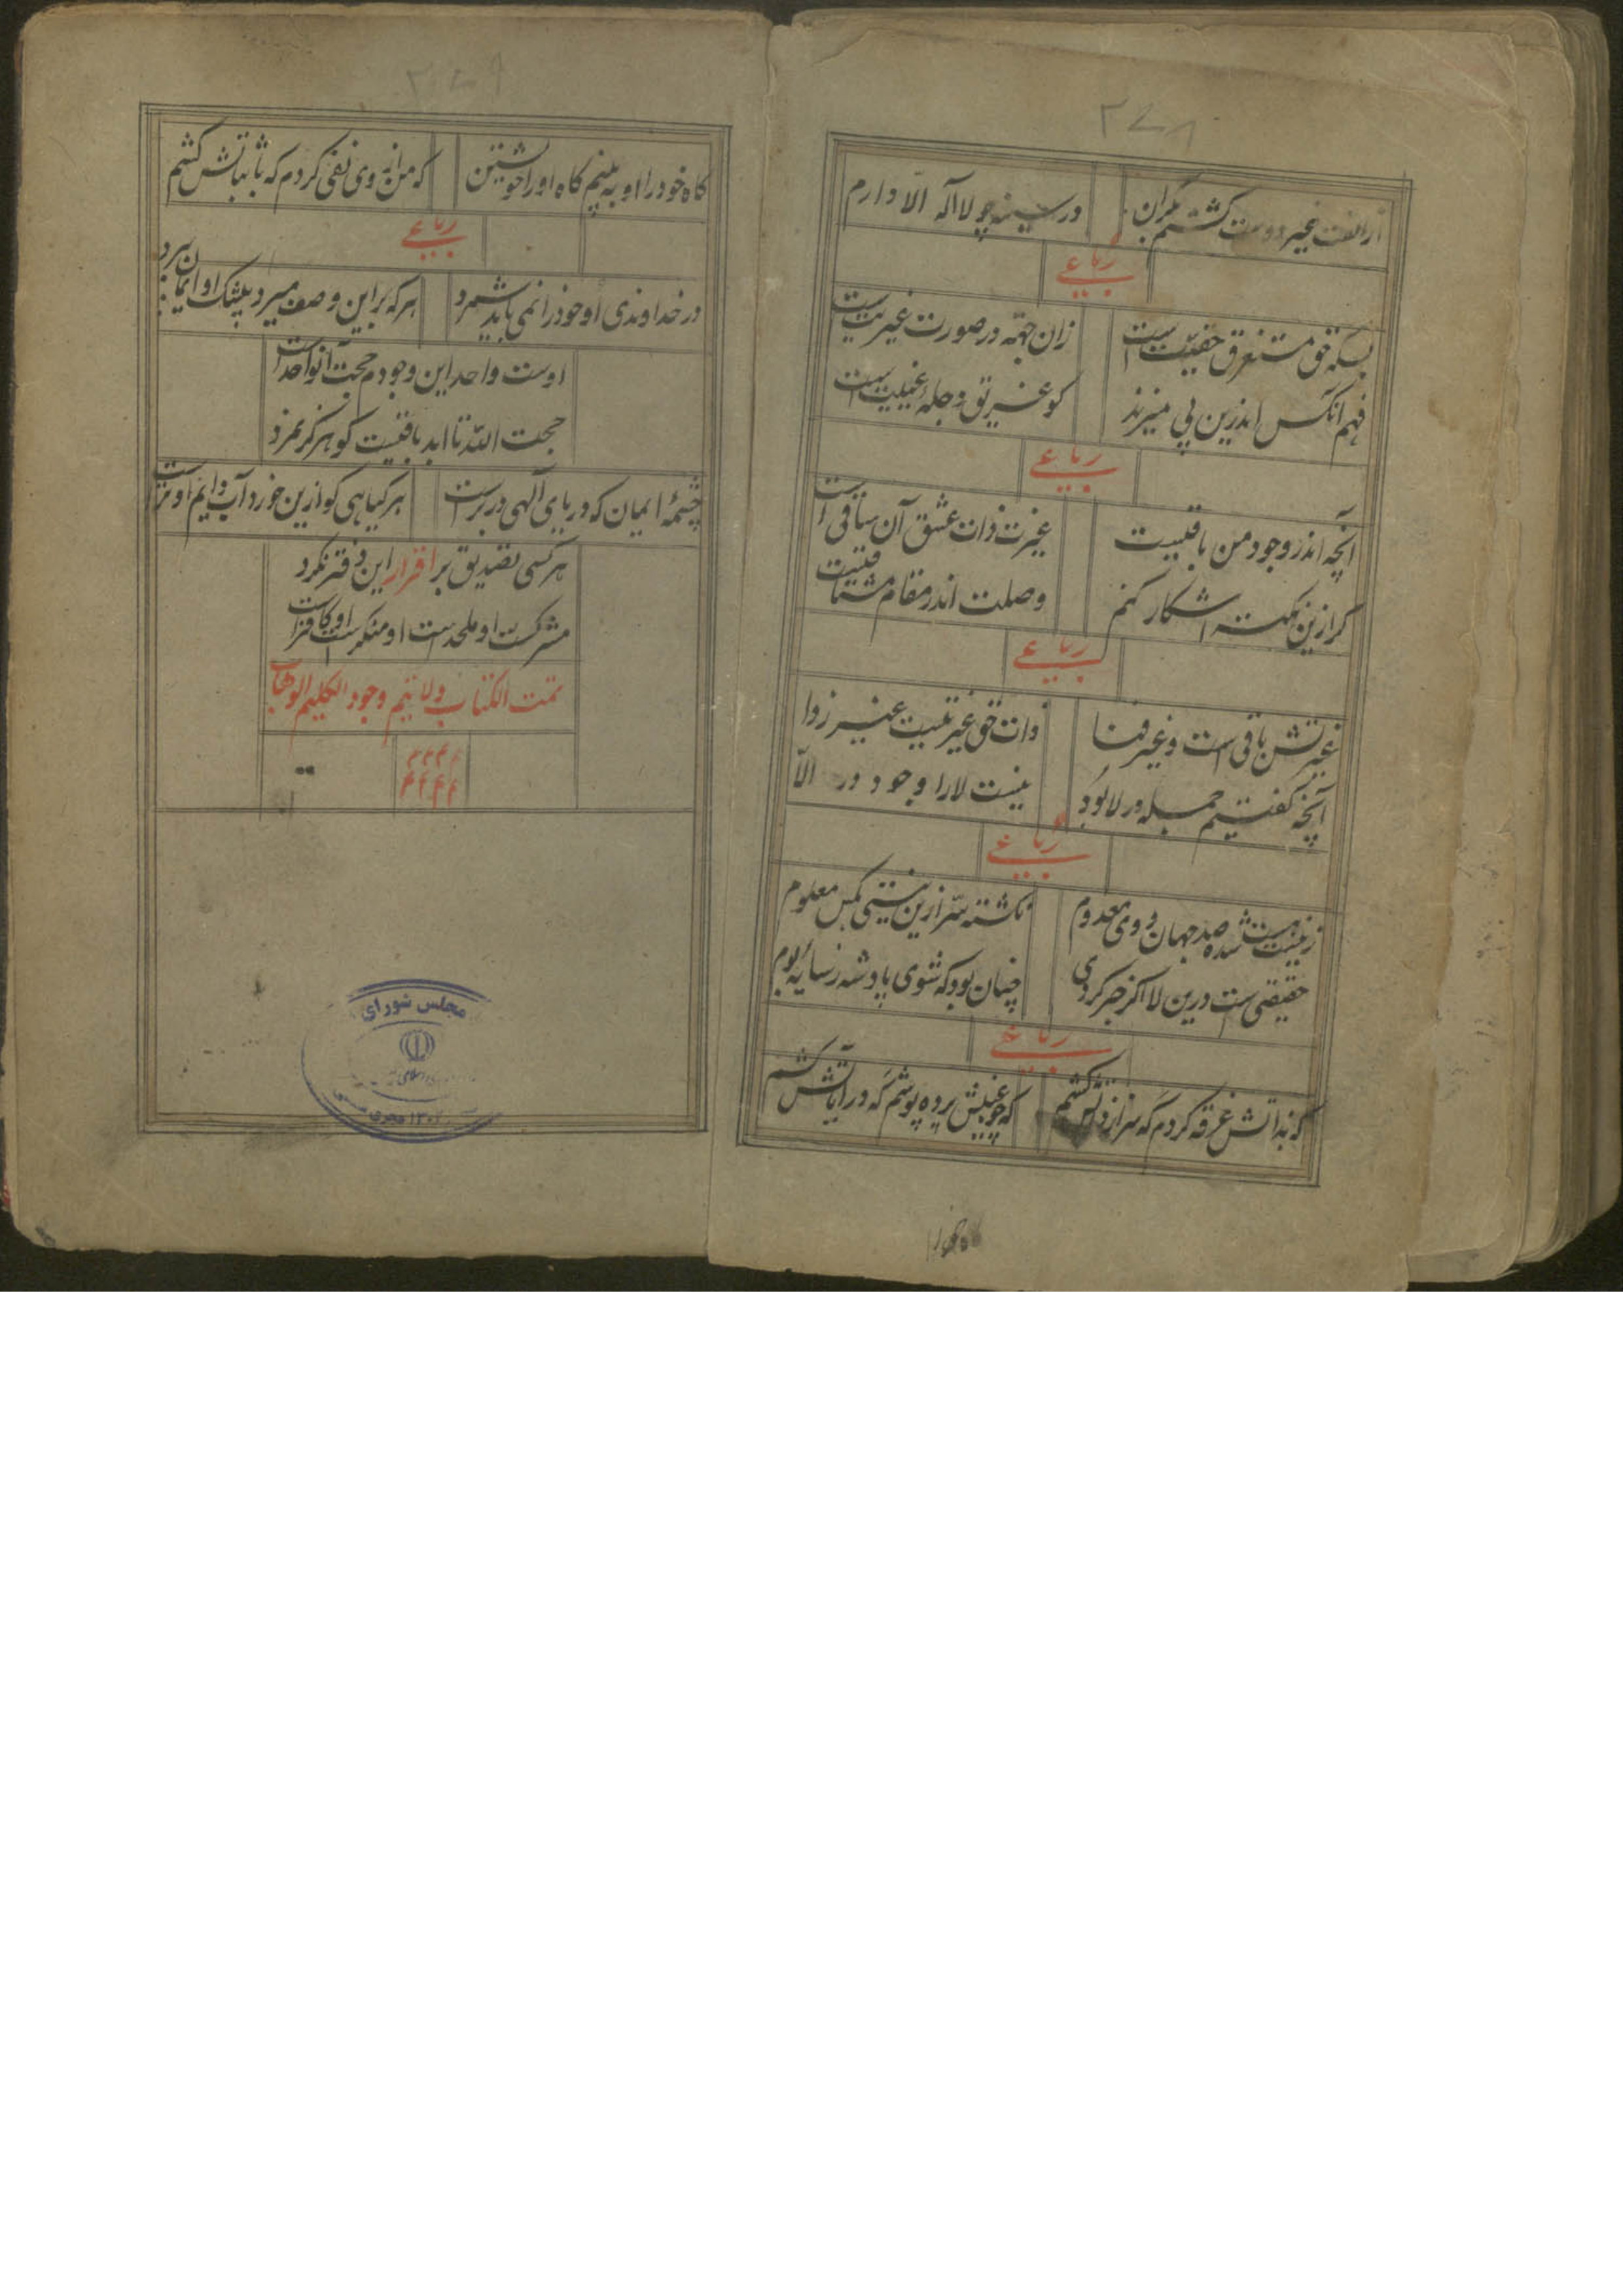 ۲۷۸
از الفت غیر دوست گشتم نگران در سینه چو لا اله الا دارم
رباعی
بسکه حق مستغرق حقیت است زان جهة در صورت غیریت است
فهم آنکس اندرین پی میزند کو غریق دجلهٔ
رباعی
آنچه اندر وجود من باقیست غیرت ذات عشق آن ساقی است
گر ازین نکته آشکار کنم وصلت اندر مقام مشتاقیست
رباعی
غیرتش باقی است و غیر فنا ذات حق غیر نیست غیر زدا
آنچه گفتیم جمله در لا بود نیست لا را وجود در الّا
رباعی
ز نیست هست شده صد جهان و وی معدوم نگشته سرّ ازین نیستی بکس معلوم
حقیقی است درین لا اگر خبر گردی چنان بود که شوی پادشه ز سایهٔ بوم
رباعی
که بذاتش غرقه کردم که سر از ذاتش کشم که چو غیبش پرده پوشم که در آیاتش کشم
گاه خود را
۲۷۹
گاه خود را او به بینم گاه او را خویشتن که من از وی نفی کردم که باثباتش کشم
رباعی
در خداوندی او خود را نمی باید شمرد هر که بر این وصف میرد بیشک او ایمان ببرد
اوست واحد این وجودم حجت آن واحد است
حجت الله تا ابد باقیست کو هرگز نمرد
چشمهٔ ایمان که دریای آلهی در برست هر گیاهی کو ازین خورد آب دایم او ترست
هر کسی تصدیق بر اقرار این دفتر نکرد
مشرکست او ملحدست او منکرست او کافرست
تمت الکتاب و لا تتم وجود الکلیم الوهاب
مجلس شورای
اسلامی
۱۳۰۲ هجری شمسی